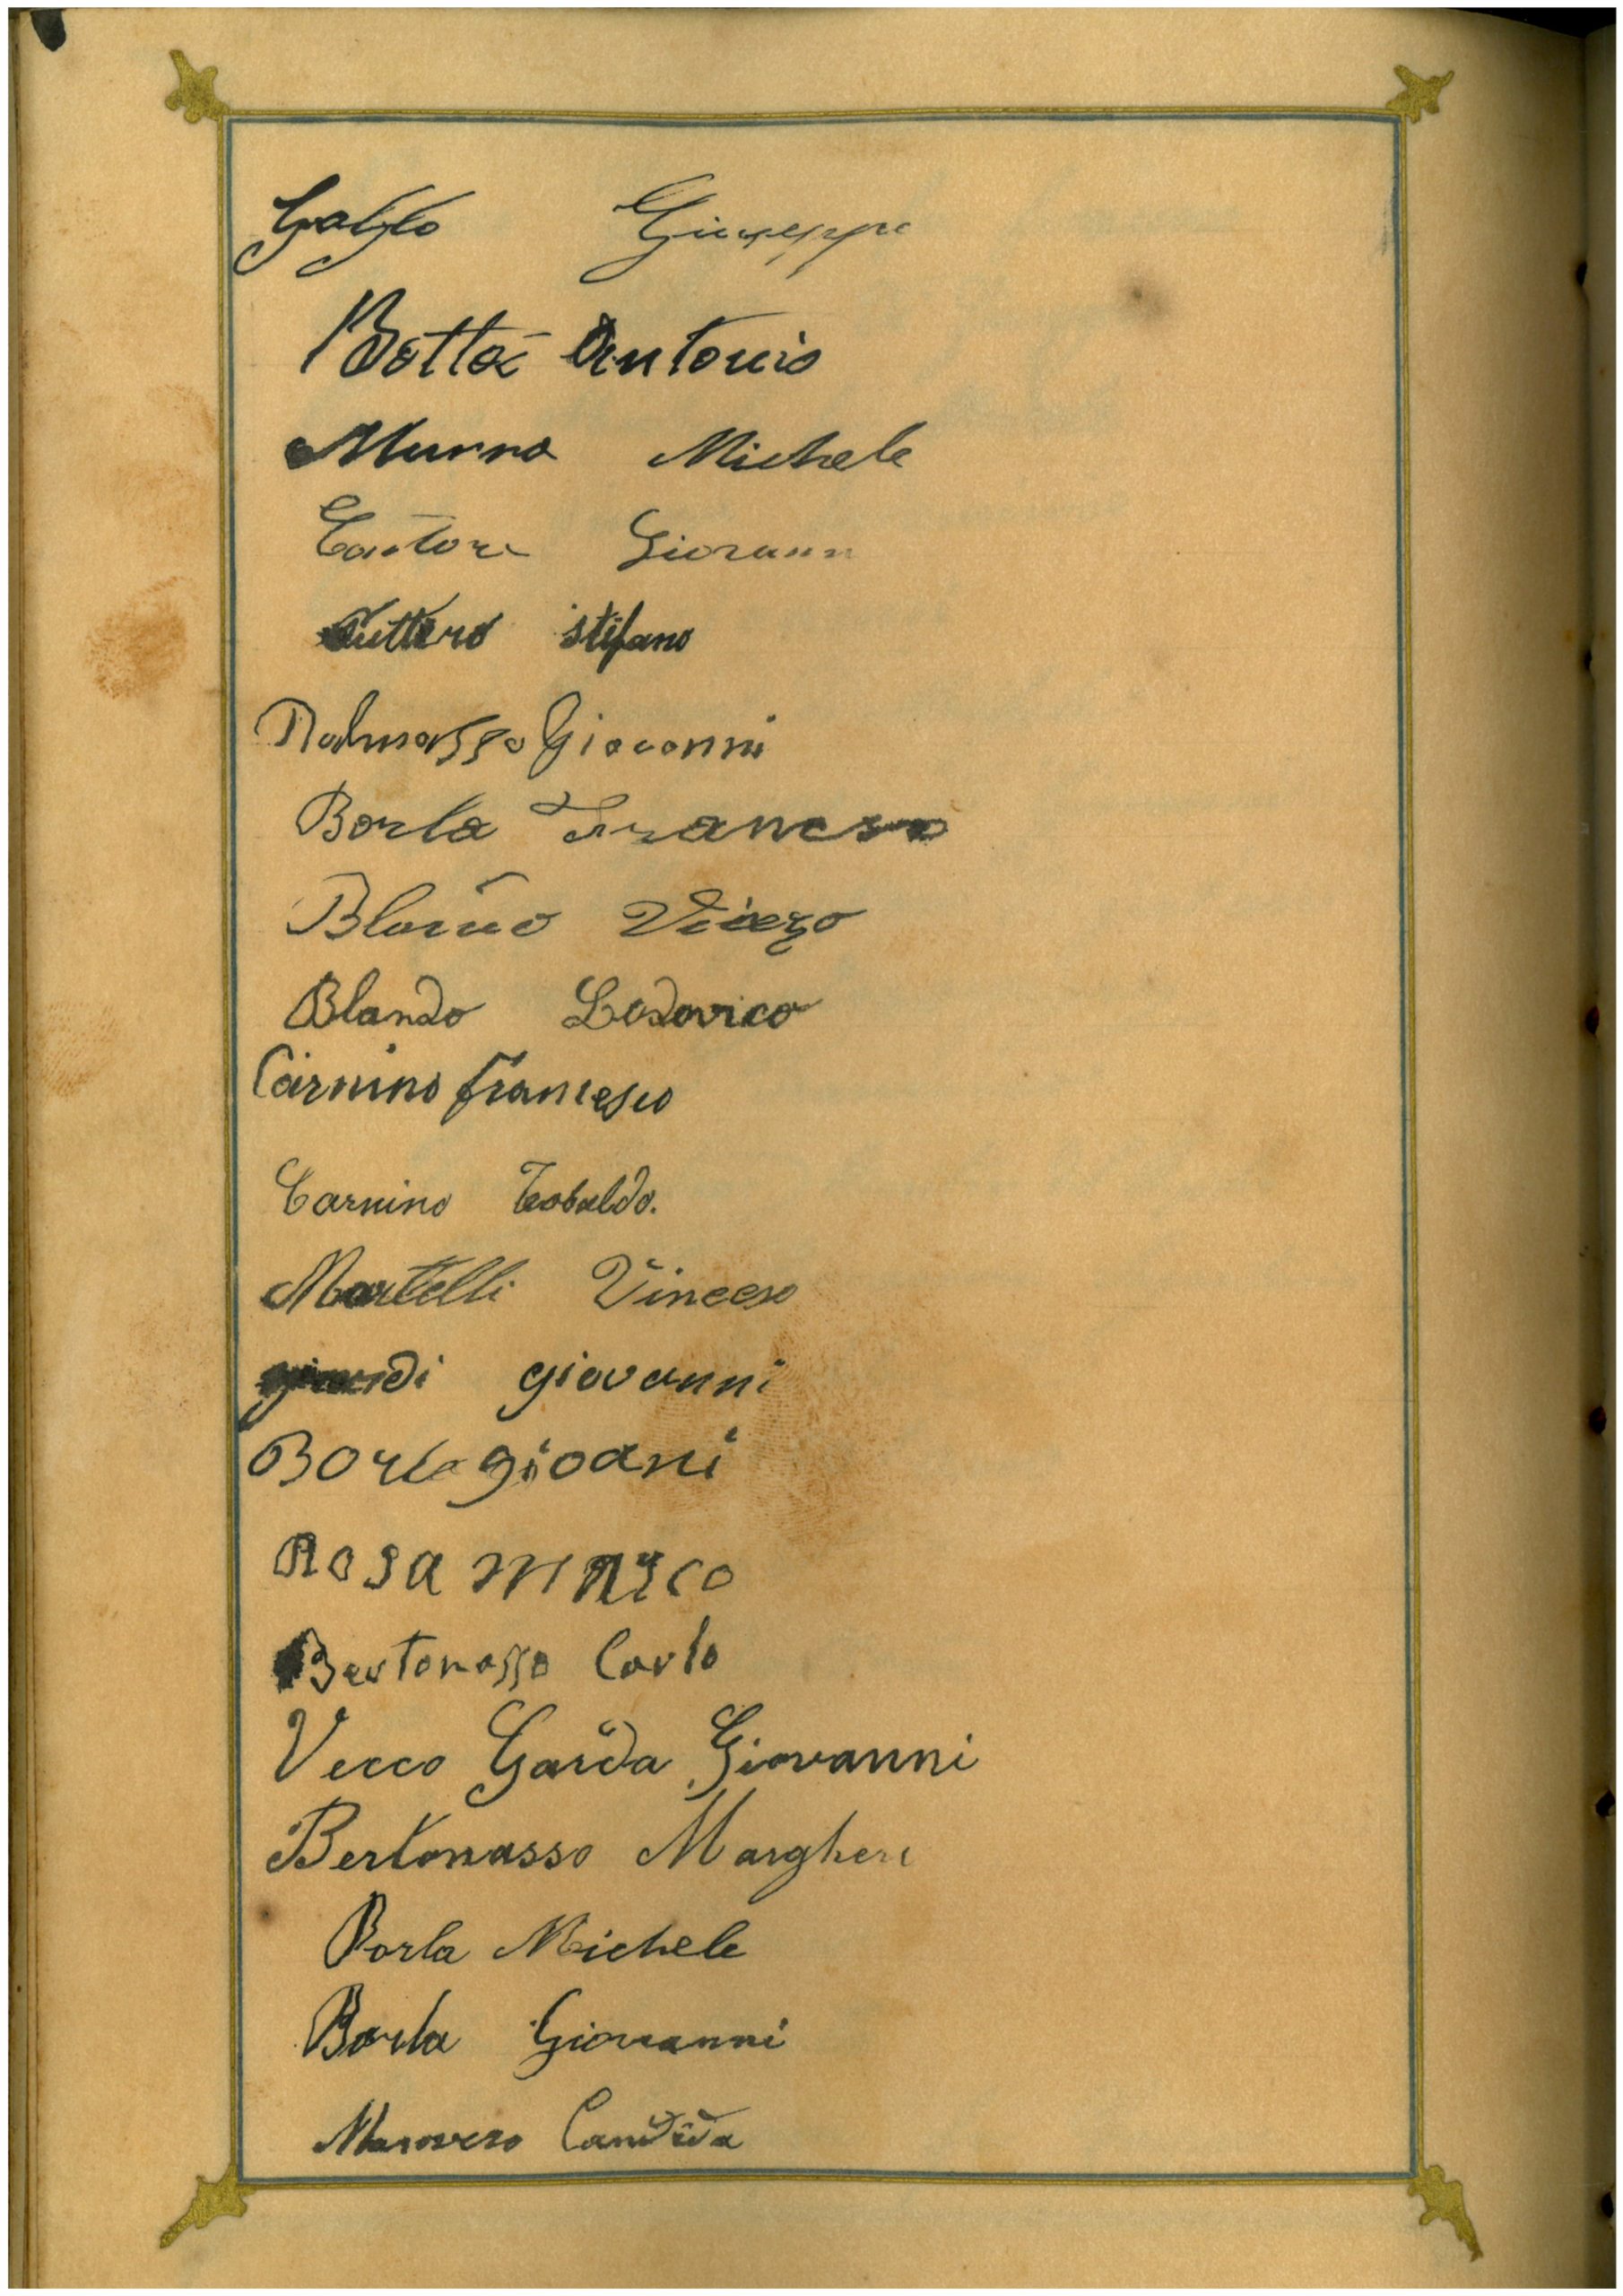 Giuseppe
Botta Antonio
Murno Michele
Giovann
Tuttero stefano
Dalmasso Giovanni
Borla
Blando Lodovico
Carnino francesco
Carnino Teobaldo.
Martelli Vinceso
giovanni
Borla gioani
ROSA MARCO
Bertomasso Carlo
Vecco Garda Giovanni
Bertomasso Margheri
Borla Michele
Borla Giovanni
Candida